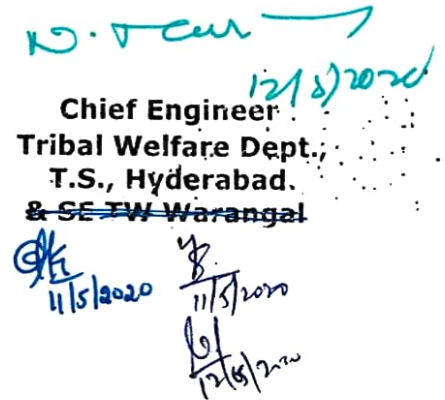 12/5/2020
Chief Engineer
Tribal Welfare Dept.,
T.S., Hyderabad.
& SE TW Warangal
11/5/2020
11/5/2020
12/05/2020